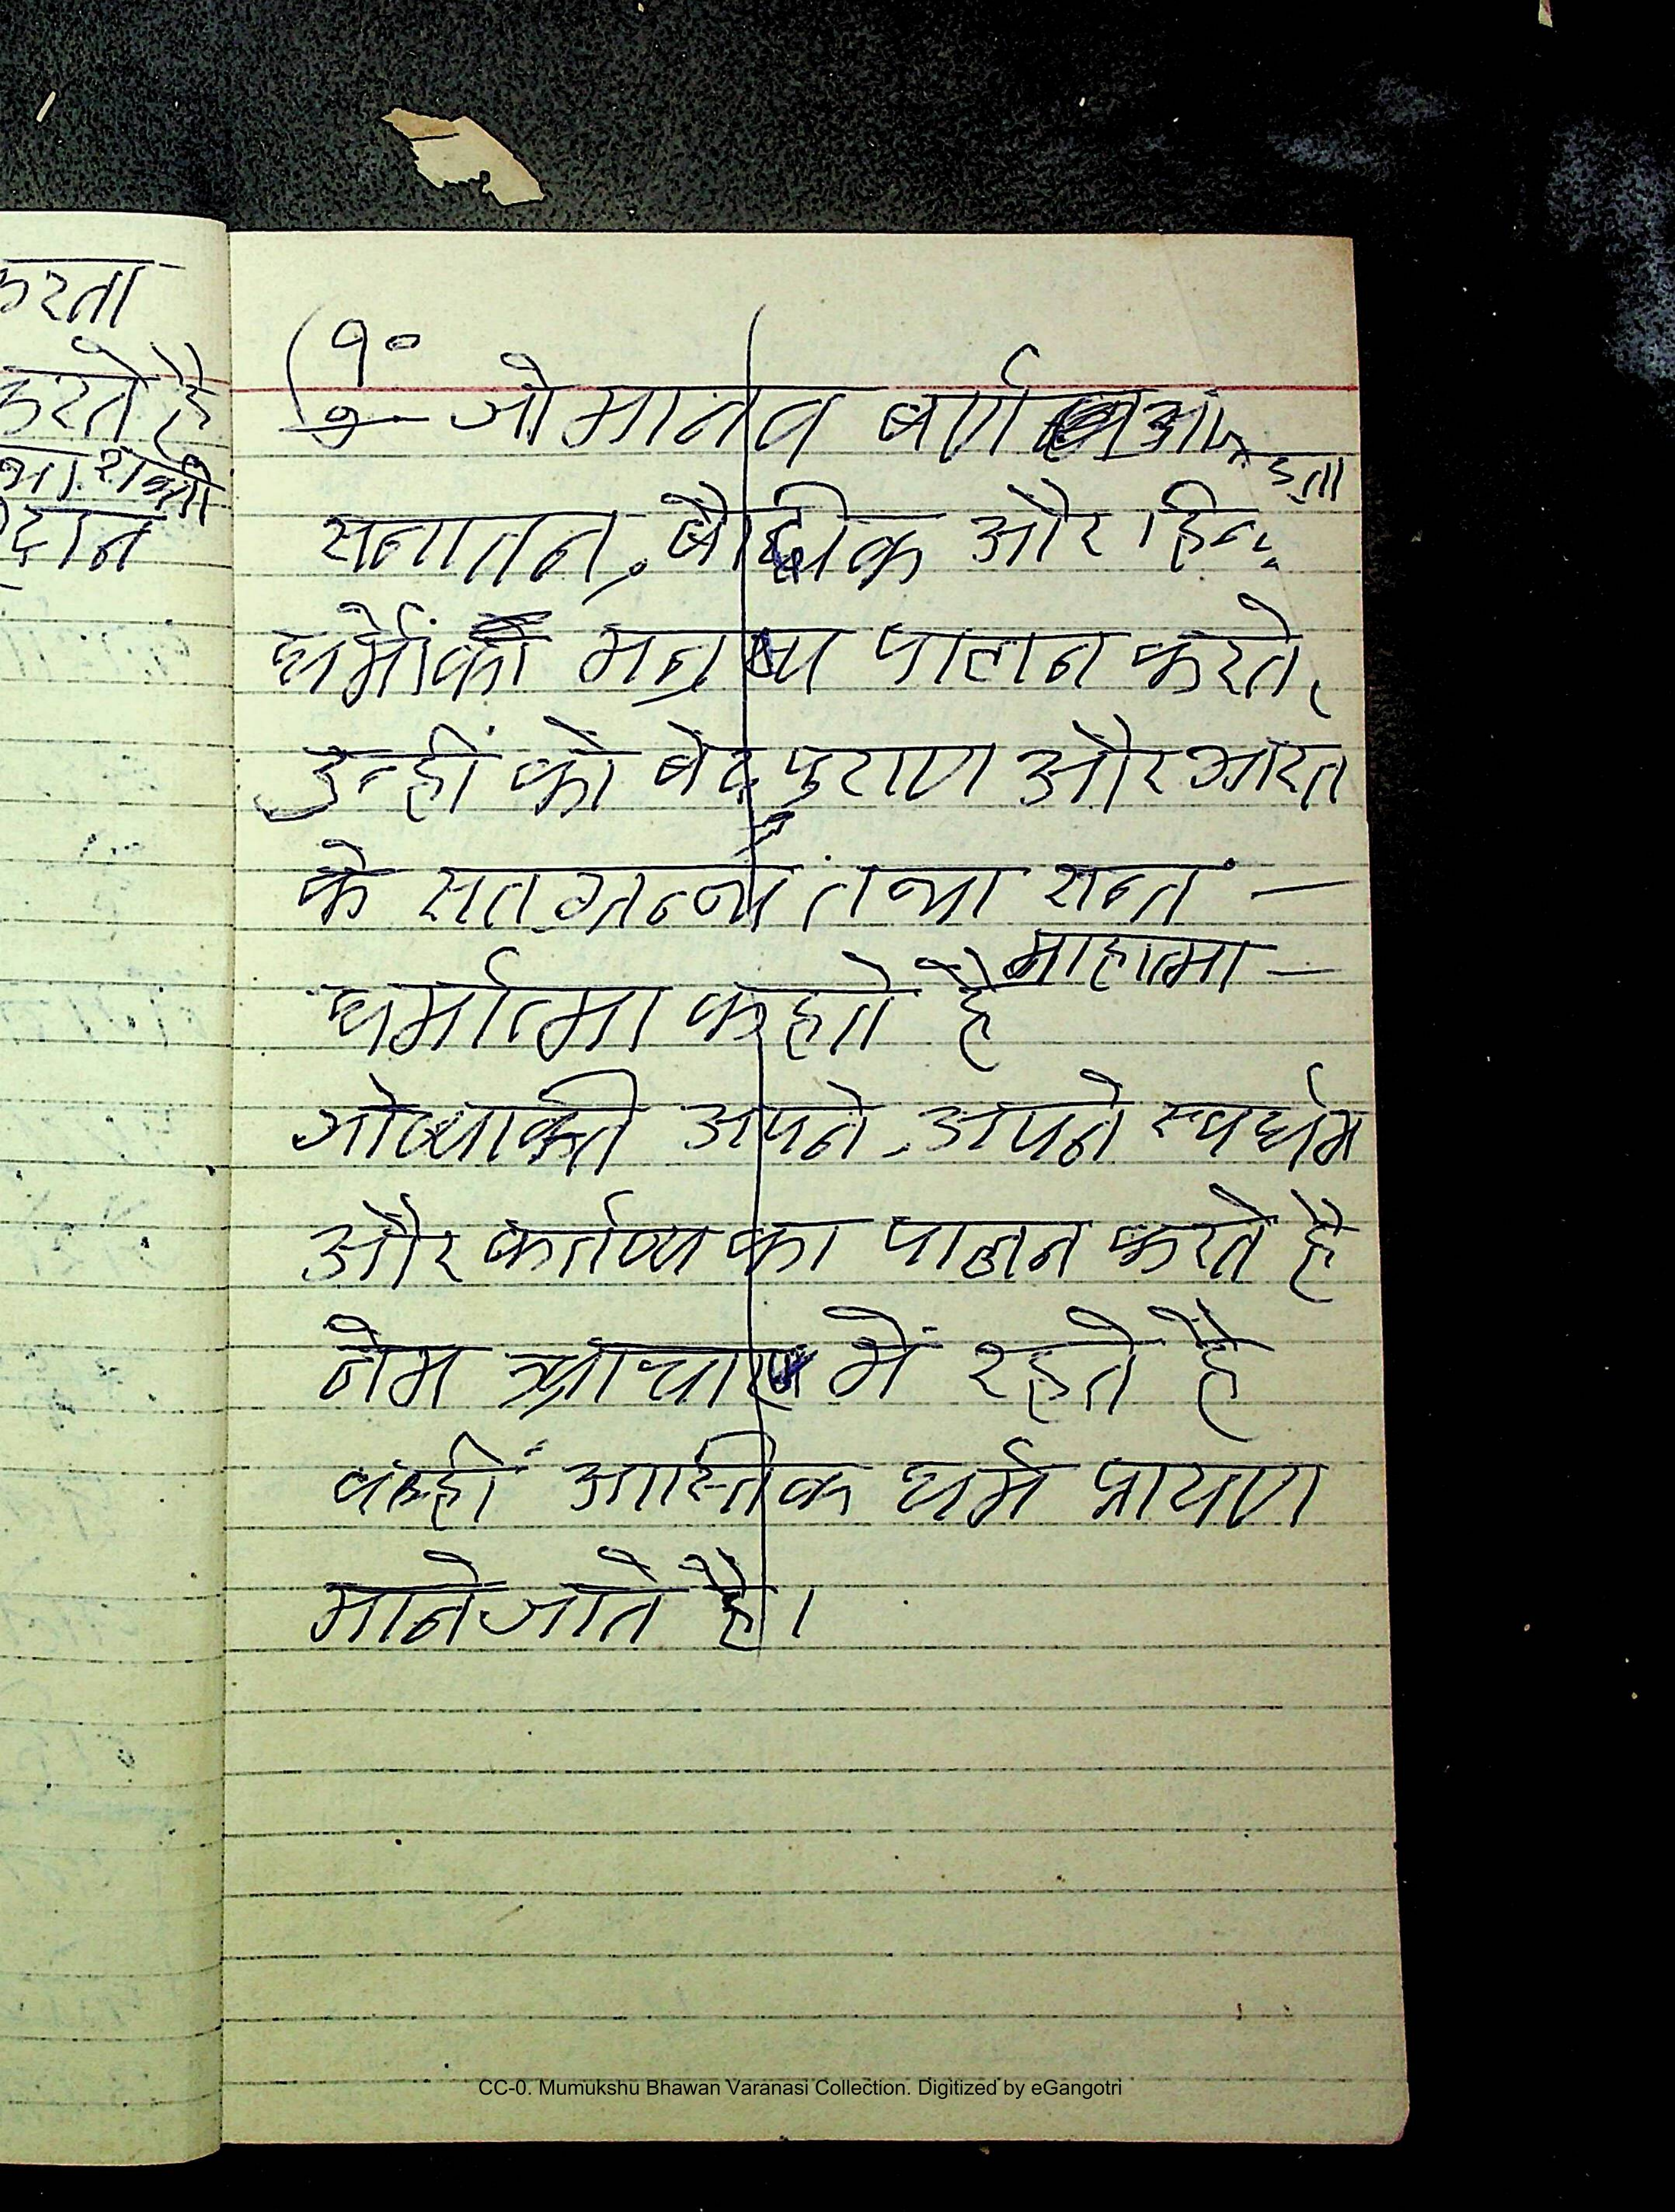 करता
करते है
दान
१०
जो मानव बर्ण
सनातन, बौद्धिक और हिन्दु
धर्मों को मनुष्य पालन करते,
उन्हीं को बेद पुराण और भारत
के सतग्रन्थों तथा सन्त —
माहात्मा —
धर्मात्मा कहते है
अपने - अपने स्वधर्म
और कर्तव्य का पालन करते है
नेम में रहते है
आस्तिक धर्म प्रायण
माने जाते है।
CC-0. Mumukshu Bhawan Varanasi Collection. Digitized by eGangotri